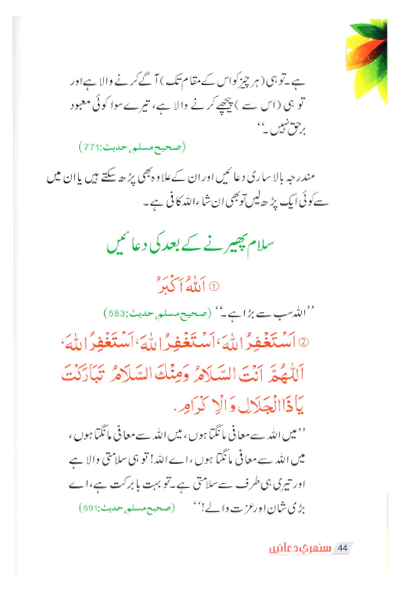 ہے۔ تو ہی (ہر چیز کو اس کے مقام تک) آگے کرنے والا ہے اور
تو ہی (اس سے) پیچھے کرنے والا ہے، تیرے سوا کوئی معبود
برحق نہیں۔‘‘
(صحیح مسلم، حدیث:771)
مندرجہ بالا ساری دعائیں اور ان کے علاوہ بھی پڑھ سکتے ہیں یا ان میں
سے کوئی ایک پڑھ لیں تو بھی ان شاء اللہ کافی ہے۔
سلام پھیرنے کے بعد کی دعائیں
① اَللّٰهُ اَكْبَرُ
’’اللہ سب سے بڑا ہے۔‘‘ (صحیح مسلم، حدیث:583)
② اَسْتَغْفِرُ اللهَ، اَسْتَغْفِرُ اللهَ، اَسْتَغْفِرُ اللهَ،
اَللّٰهُمَّ اَنْتَ السَّلَامُ وَمِنْكَ السَّلَامُ تَبَارَكْتَ
يَا ذَا الْجَلَالِ وَالْاِكْرَامِ.
’’میں اللہ سے معافی مانگتا ہوں، میں اللہ سے معافی مانگتا ہوں،
میں اللہ سے معافی مانگتا ہوں، اے اللہ! تو ہی سلامتی والا ہے
اور تیری ہی طرف سے سلامتی ہے۔ تو بہت بابرکت ہے، اے
بڑی شان اور عزت والے!‘‘ (صحیح مسلم، حدیث:591)
44 سنہری دعائیں